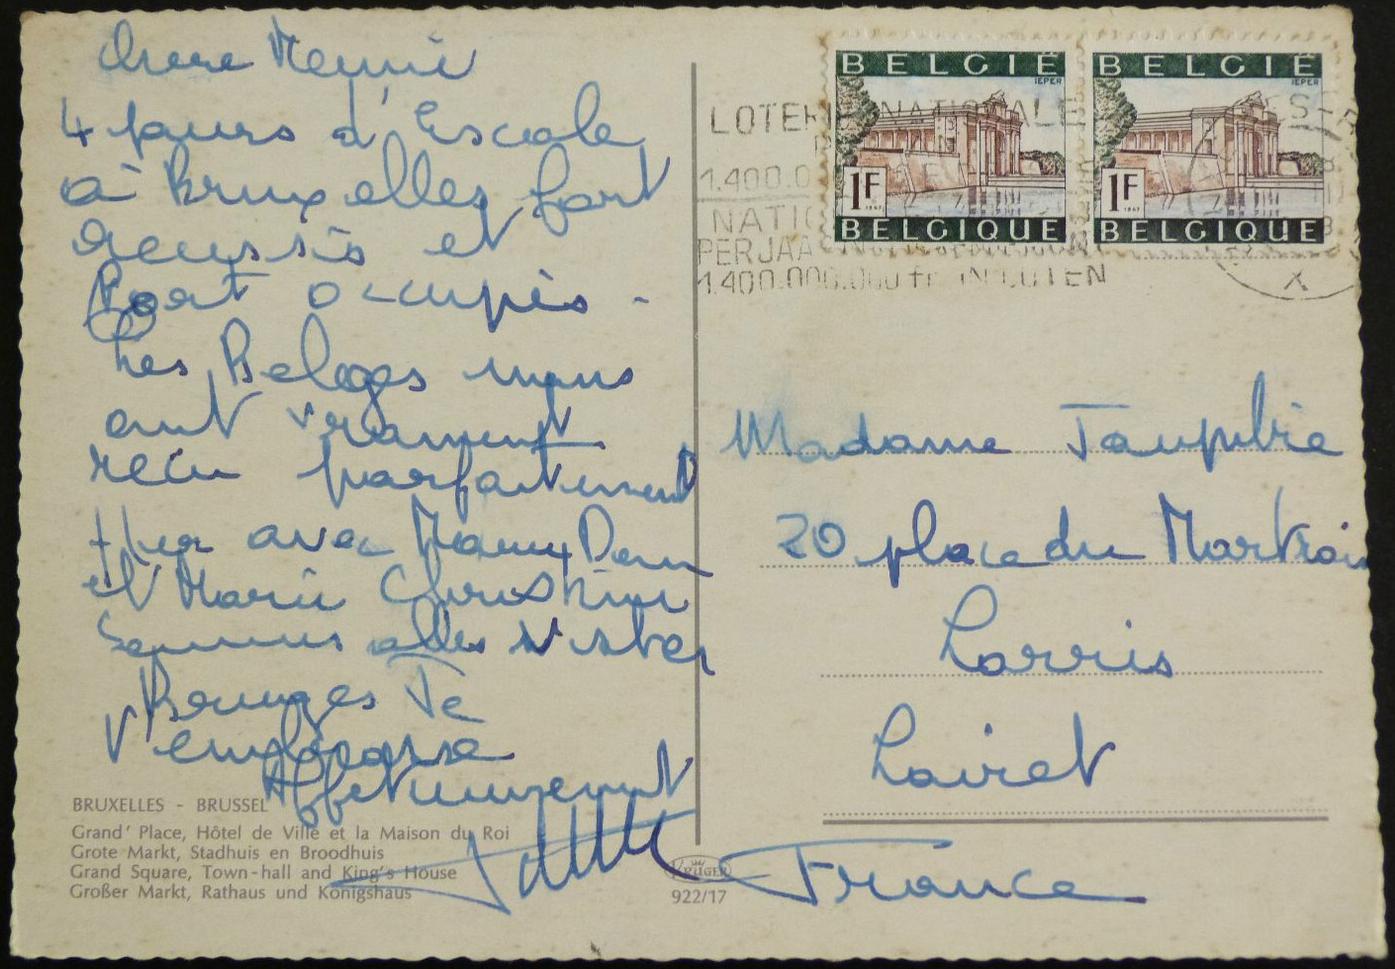 Chere Memie
4 jours d'Escale
à Bruxelles fort
reussis et
fort occupés -
Les Belges nous
ont vraiment
recu parfaitement
Hier avec Mamy Dom
et Marie Christine
sommes allés visiter
Bruges Je
t'embrasse
Affectueusement
BRUXELLES - BRUSSEL
Grand' Place, Hôtel de Ville et la Maison du Roi
Grote Markt, Stadhuis en Broodhuis
Grand Square, Town-hall and King's House
Großer Markt, Rathaus und Königshaus
KRÜGER
922/17
BELGIË
IEPER
1F
BELGIQUE
BELGIË
IEPER
1F
BELGIQUE
LOTERIE NATIONALE
1.400.0
NATIO
PER JAAR
1.400.000.000 fr IN LOTEN
X
Madame
20 place du Martroi
Lorris
Loiret
France